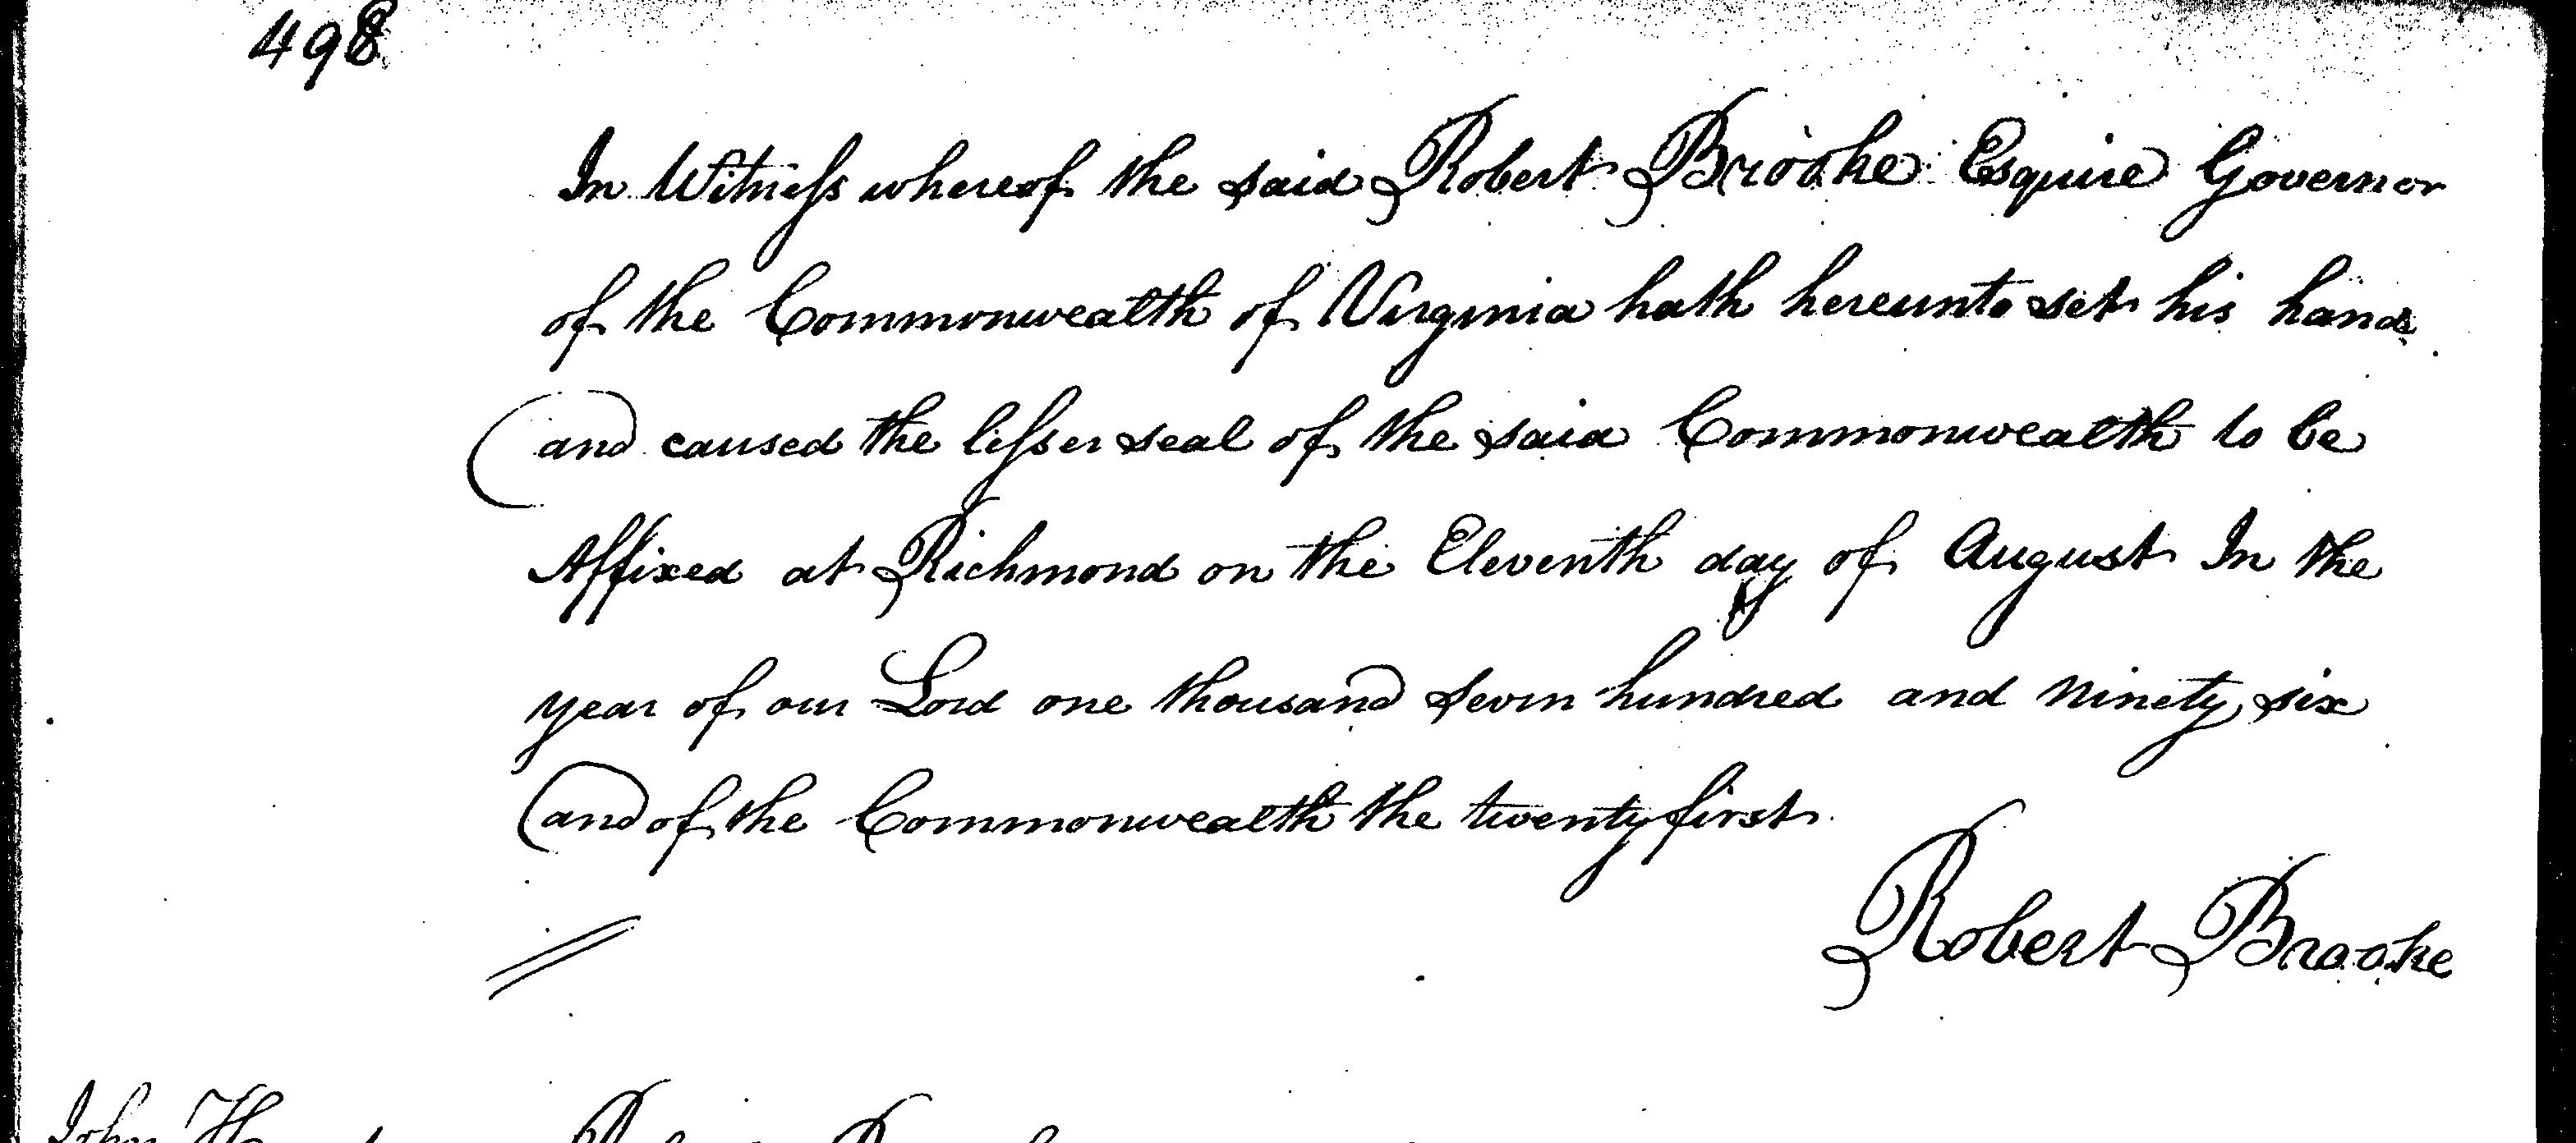 498
In Witness whereof the said Robert Brooke Esquire Governor
of the Commonwealth of Virginia hath hereunto set his hand
and caused the lesser seal of the said Commonwealth to be
Affixed at Richmond on the Eleventh day of August In the
year of our Lord one thousand seven hundred and ninety six
and of the Commonwealth the twenty first
Robert Brooke
John